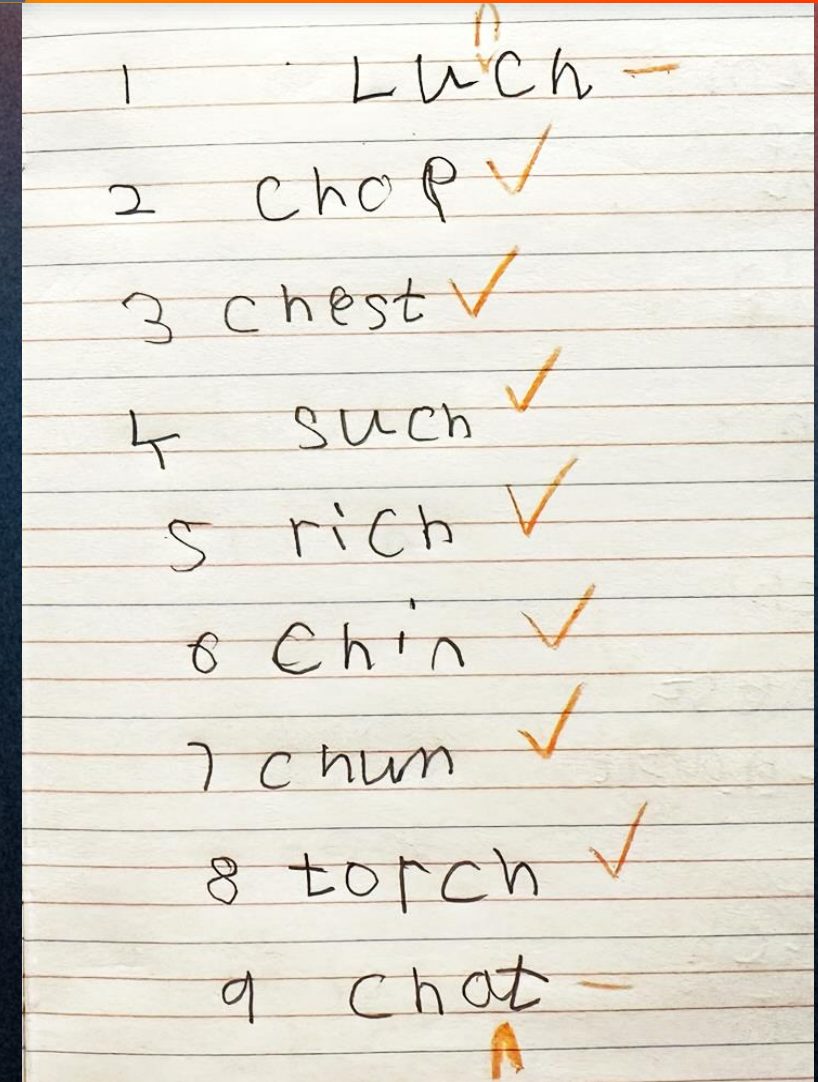 n
1 Luch –
2 chop ✓
3 chest ✓
4 such ✓
5 rich ✓
6 chin ✓
7 chum ✓
8 torch ✓
9 chat –
n